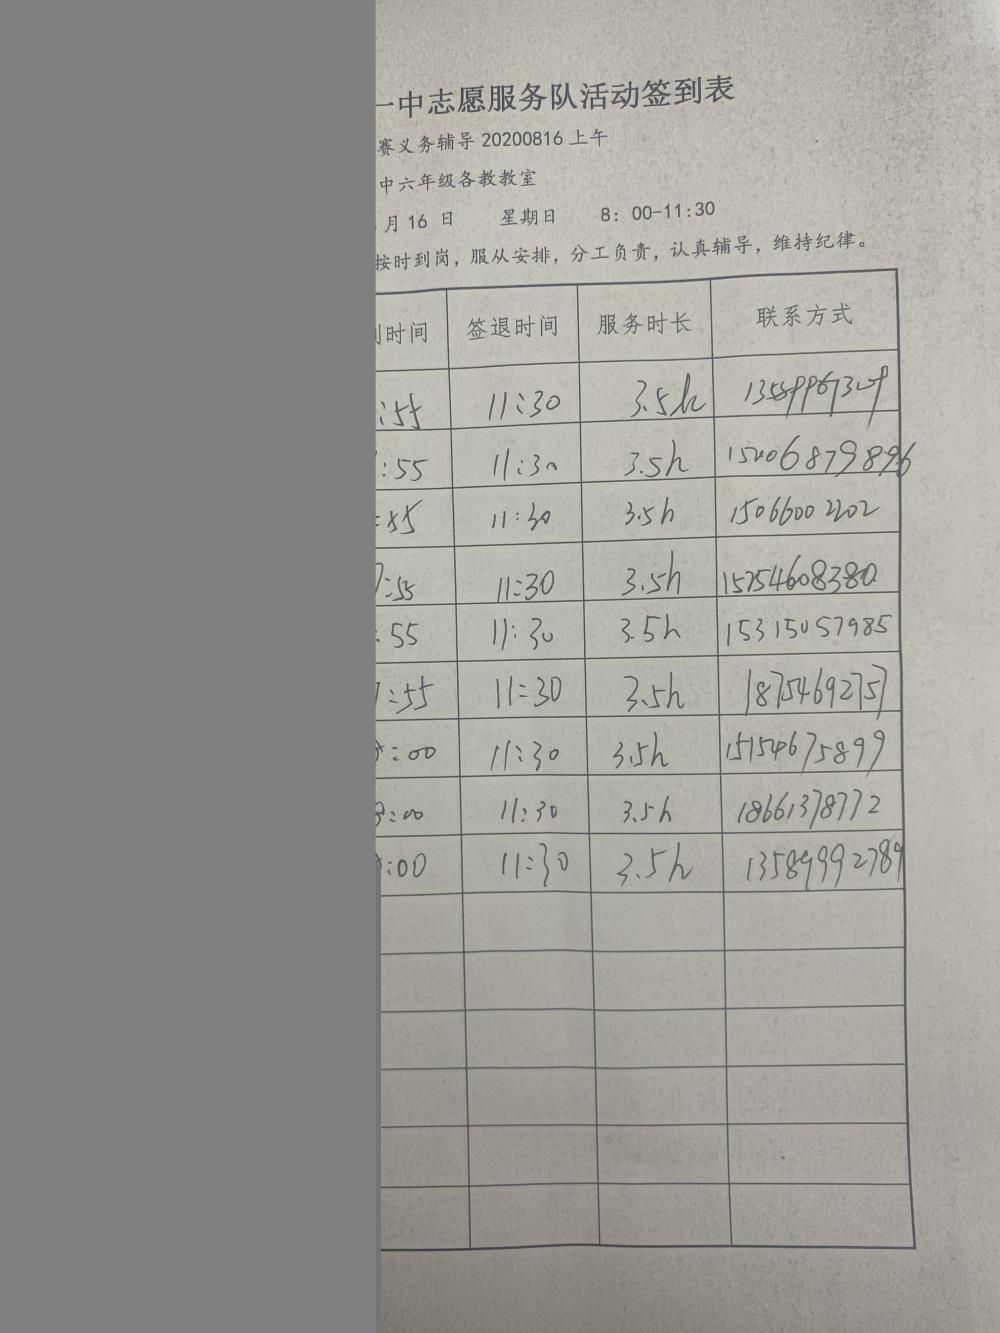 一中志愿服务队活动签到表
赛义务辅导 20200816 上午
中六年级各教教室
月 16 日 星期日 8: 00-11:30
按时到岗，服从安排，分工负责，认真辅导，维持纪律。
时间 签退时间 服务时长 联系方式
:55 11:30 3.5h
:55 11:30 3.5h 15206879896
:55 11:30 3.5h 15066002202
7:55 11:30 3.5h 15754608380
:55 11:30 3.5h 15315057985
7:55 11:30 3.5h 18754692757
:00 11:30 3.5h 15154675899
8:00 11:30 3.5h 18661378772
:00 11:30 3.5h 13589992789